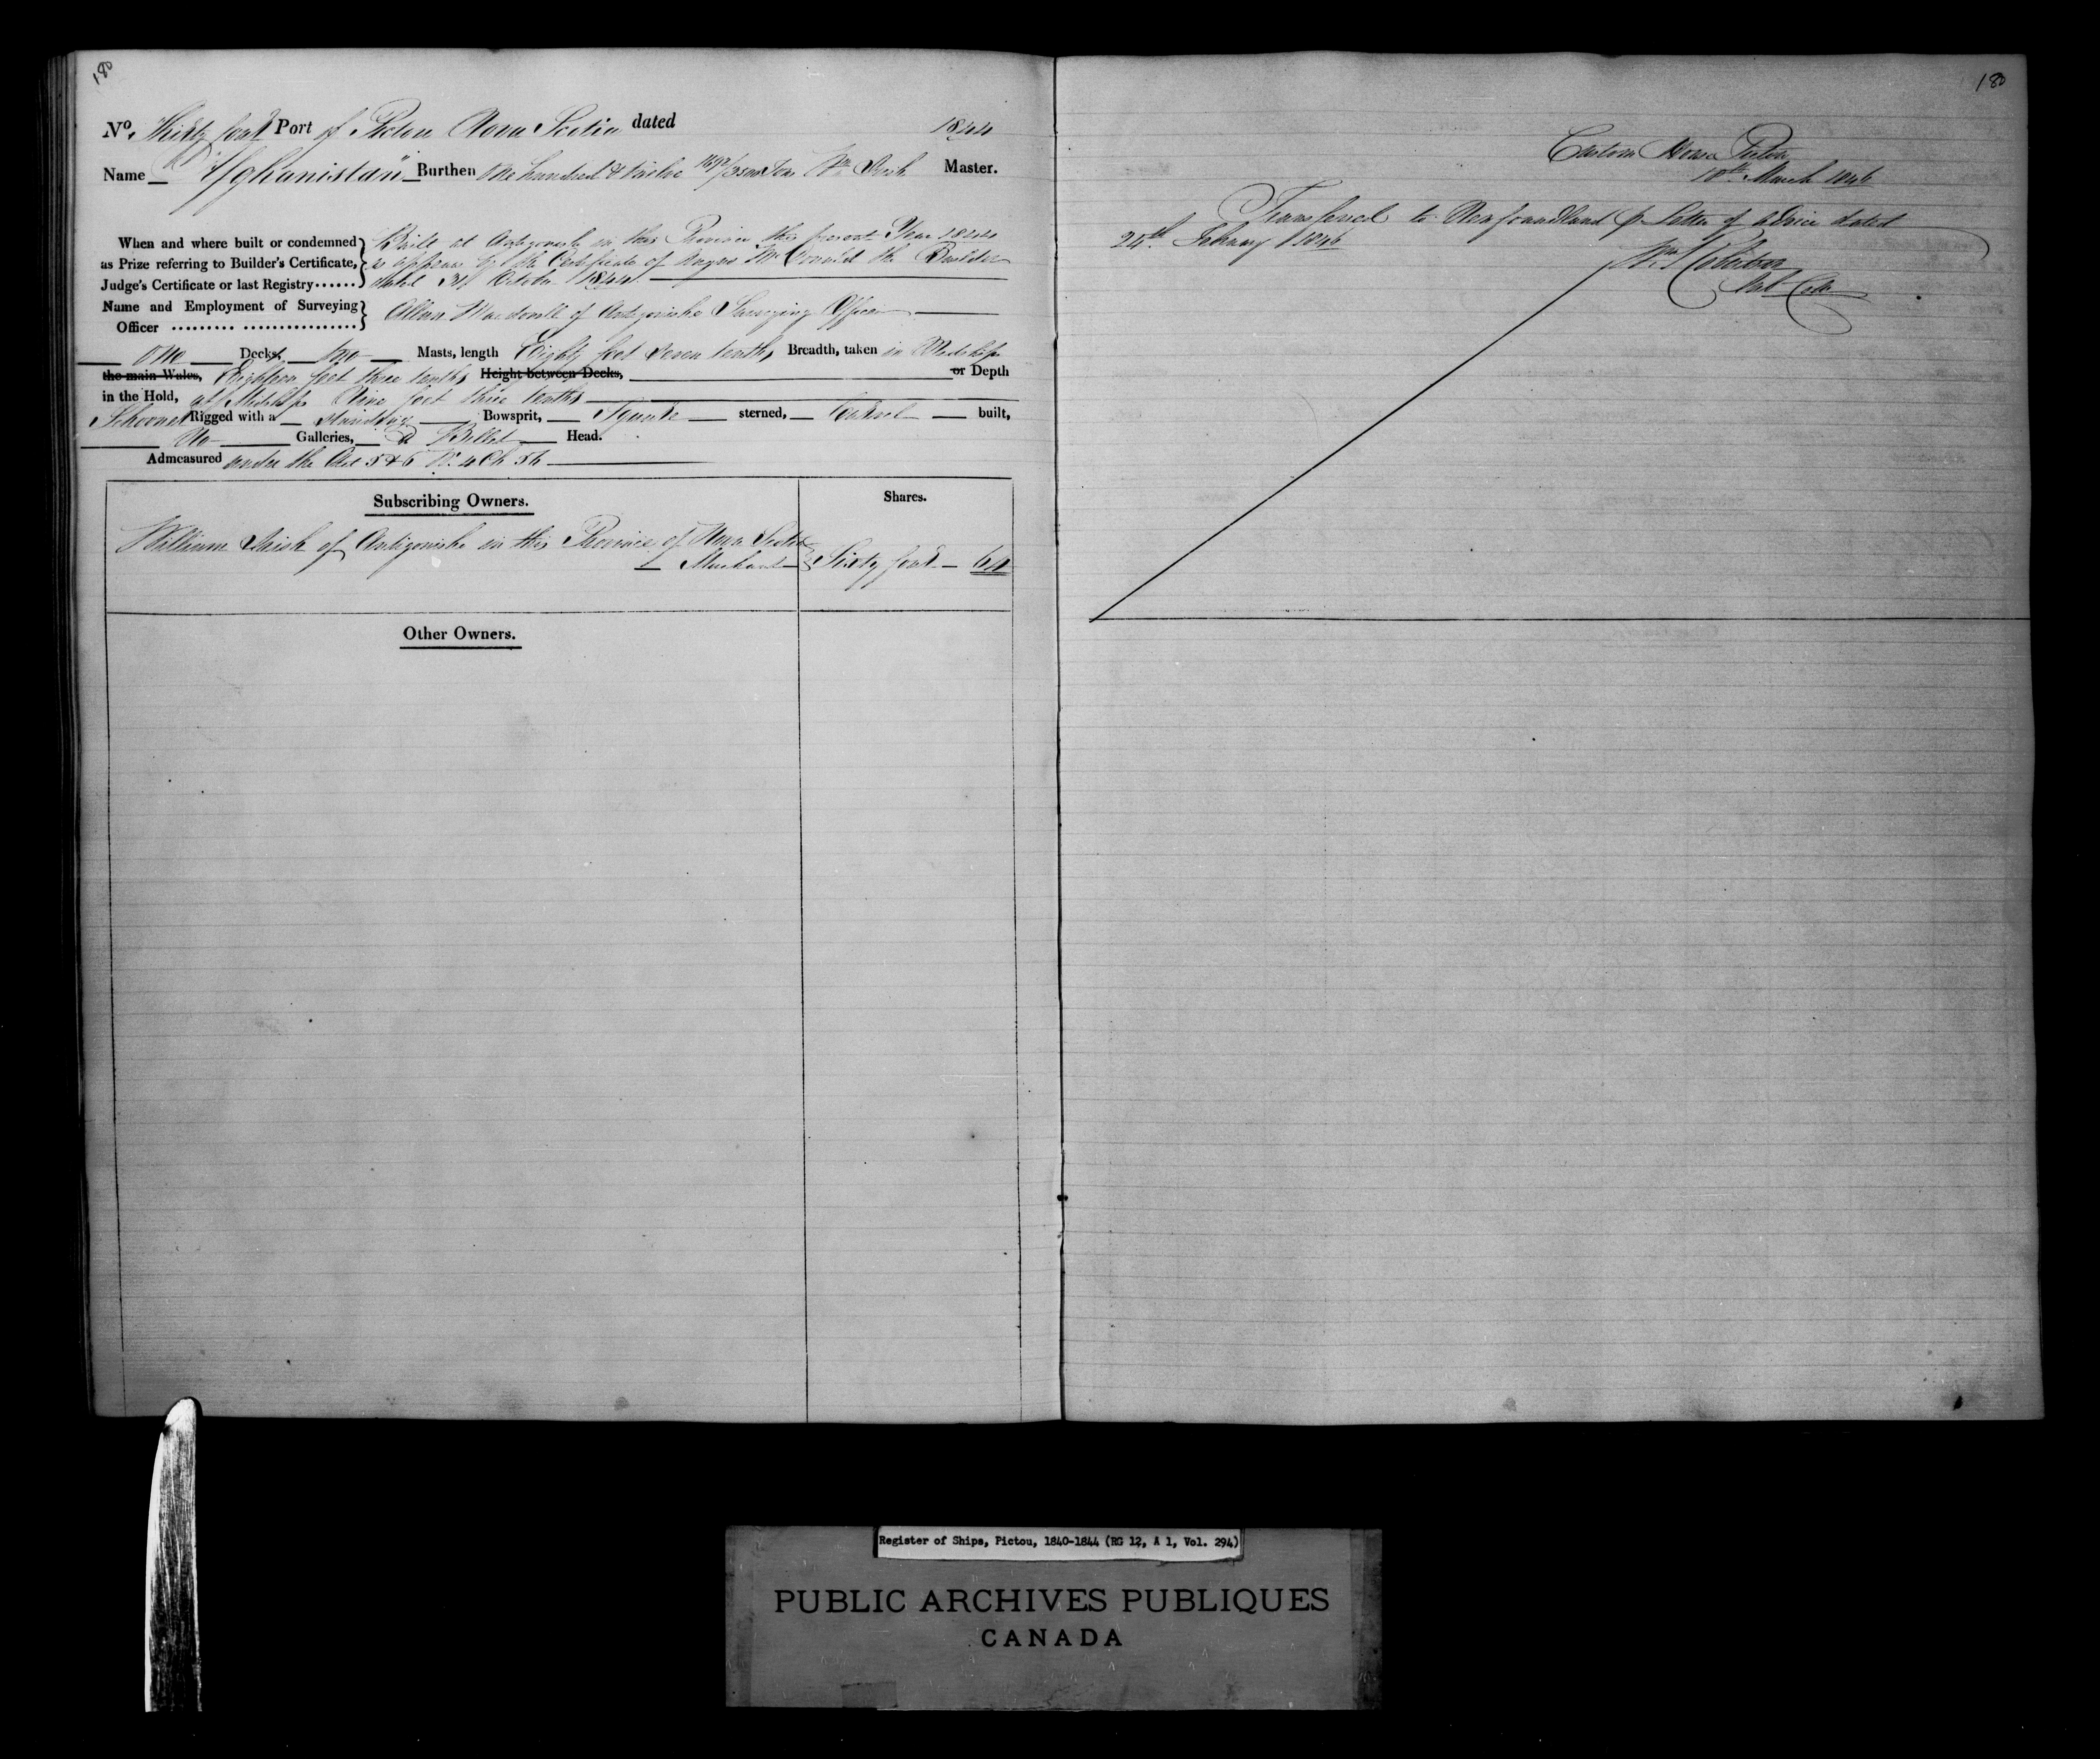 180
No. Thirty four Port of Pictou Nova Scotia dated 1844
Name "Afghanistan" Burthen One hundred & twelve Tons Wm Master.
When and where built or condemned as Prize referring to Builder's Certificate, Judge's Certificate or last Registry......
Built at Antigonish in this Province this present Year 1844
as appears by the Certificate of Angus the Builder
dated 31 October 1844
Name and Employment of Surveying Officer ......... ................
Allan Macdonell of Antigonishe Surveying Officer
One Decks, Two Masts, length Eighty feet Seven tenths Breadth, taken in Midships
the main Wales, Eighteen feet three tenths Height between Decks, or Depth
in the Hold, at Midships Nine feet three tenths
Schooner Rigged with a standing Bowsprit, Square sterned, Carvel built,
No Galleries, a Billet Head.
Admeasured under the Act 5 & 6 W. 4 Ch 56
Subscribing Owners. Shares.
William of Antigonishe in this Province of Nova Scotia
Merchant Sixty four 64
Other Owners.
180
Custom House Pictou
10th March 1846
Transferred to Newfoundland p Letter of advice dated
24th February 1846
Register of Ships, Pictou, 1840-1844 (RG 12, A 1, Vol. 294)
PUBLIC ARCHIVES PUBLIQUES
CANADA